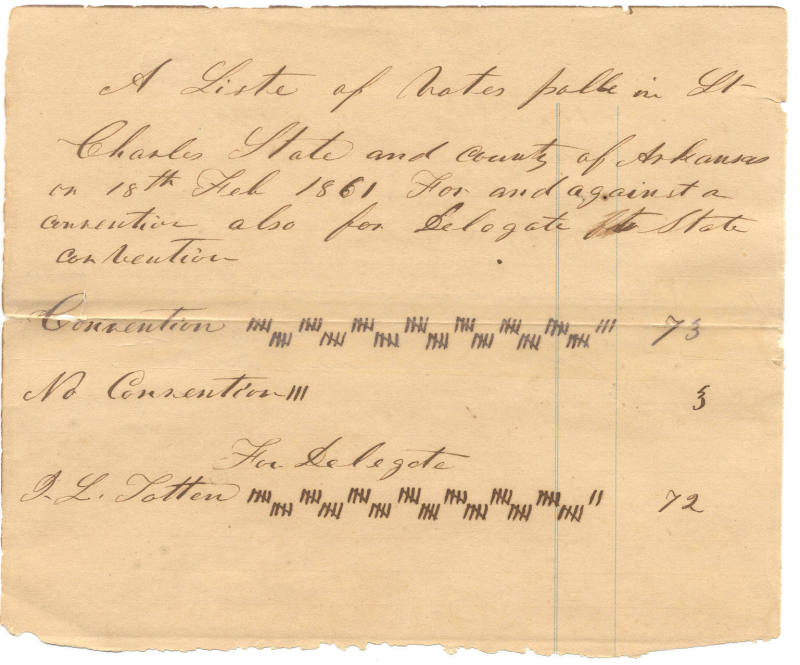 A Liste of Votes polle in St
Charles State and county of Arkansas
on 18th Feb 1861 For and against a
convention also for Delogate to State
convention
Convention 73
No Convention III 3
For Delegate
J. L. Totten 72